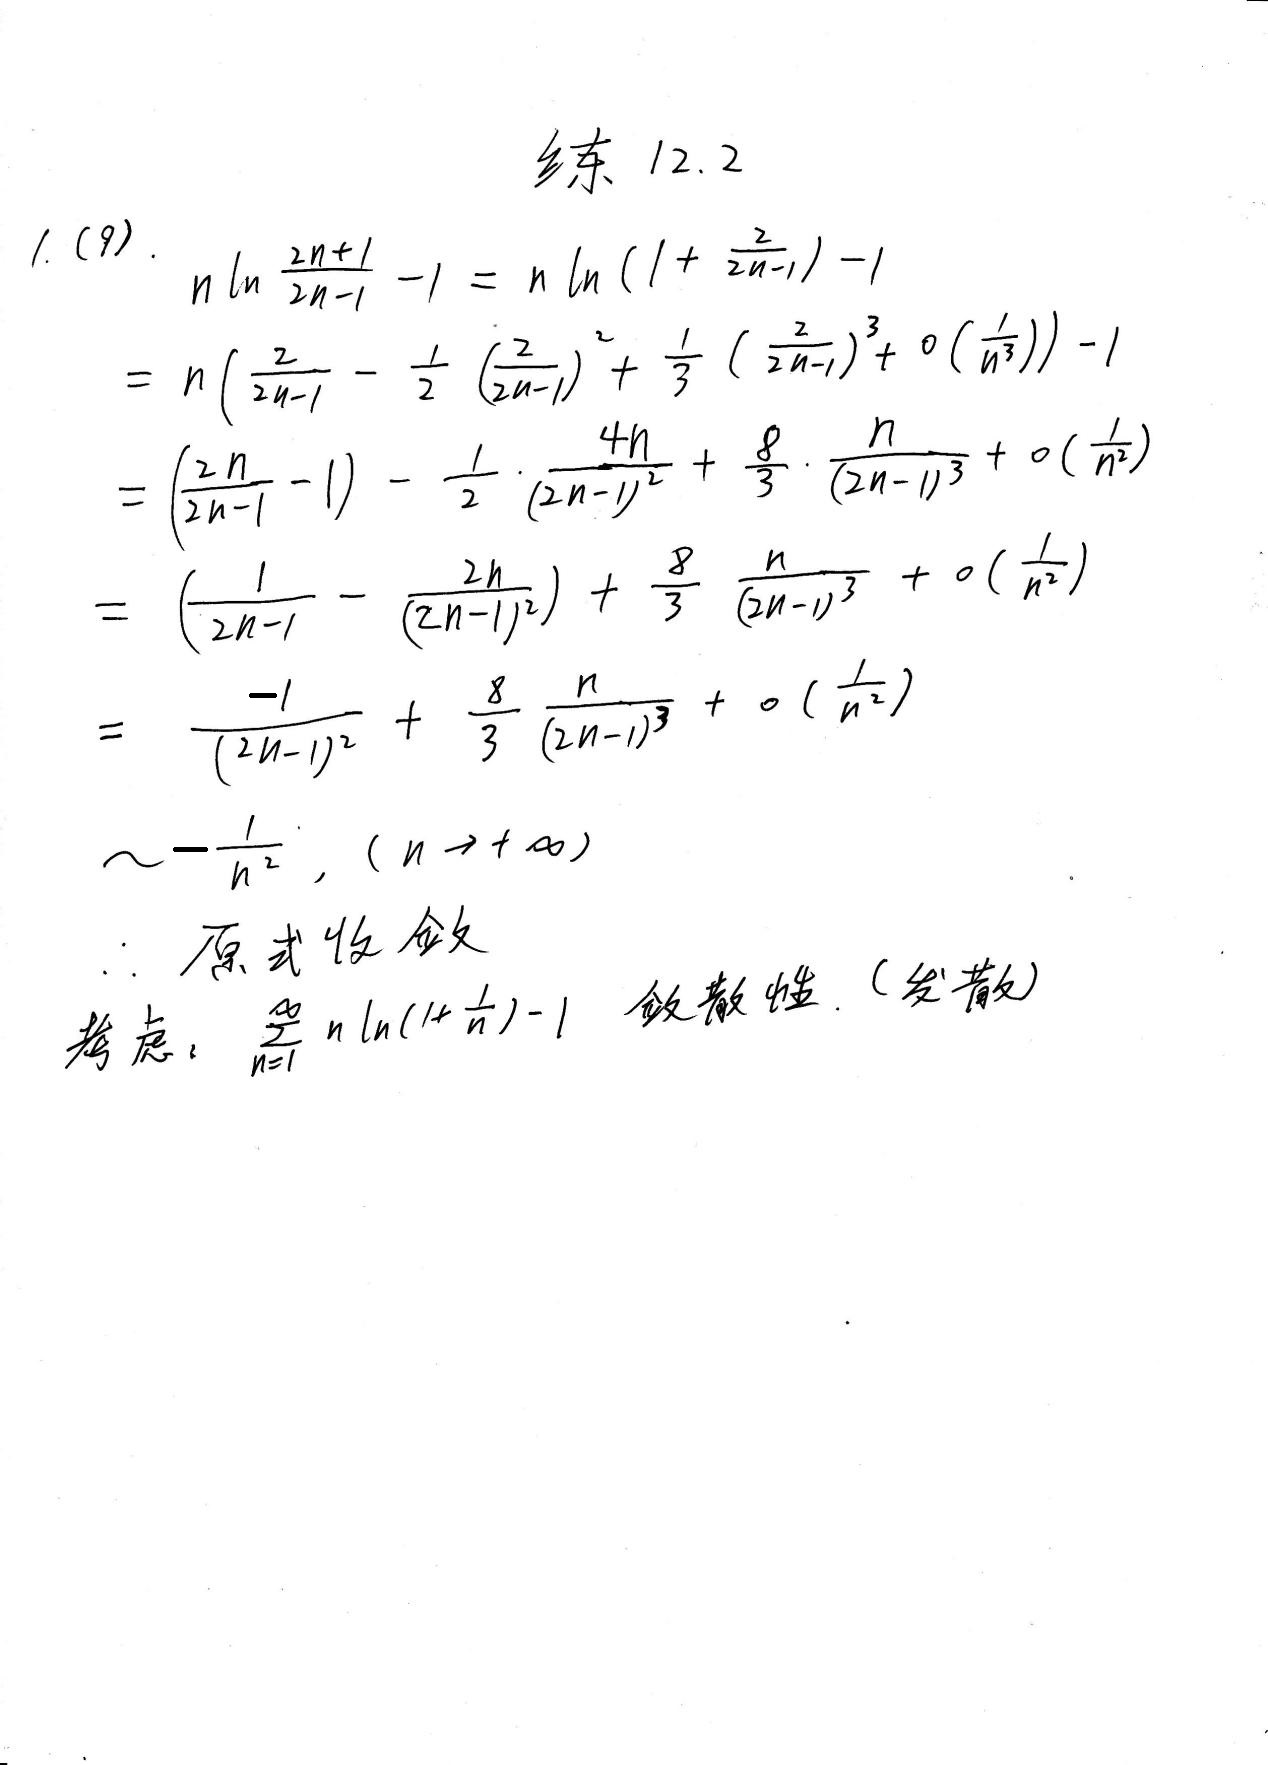 练 12.2
1. (9). n ln \frac{2n+1}{2n-1} - 1 = n ln (1 + \frac{2}{2n-1}) - 1
= n ( \frac{2}{2n-1} - \frac{1}{2} (\frac{2}{2n-1})^2 + \frac{1}{3} (\frac{2}{2n-1})^3 + o(\frac{1}{n^3}) ) - 1
= (\frac{2n}{2n-1} - 1) - \frac{1}{2} · \frac{4n}{(2n-1)^2} + \frac{8}{3} · \frac{n}{(2n-1)^3} + o(\frac{1}{n^2})
= (\frac{1}{2n-1} - \frac{2n}{(2n-1)^2}) + \frac{8}{3} \frac{n}{(2n-1)^3} + o(\frac{1}{n^2})
= \frac{-1}{(2n-1)^2} + \frac{8}{3} \frac{n}{(2n-1)^3} + o(\frac{1}{n^2})
~ - \frac{1}{n^2}, (n → +∞)
∴ 原式收敛
考虑: \sum_{n=1}^{∞} n ln(1+\frac{1}{n}) - 1 敛散性. (发散)